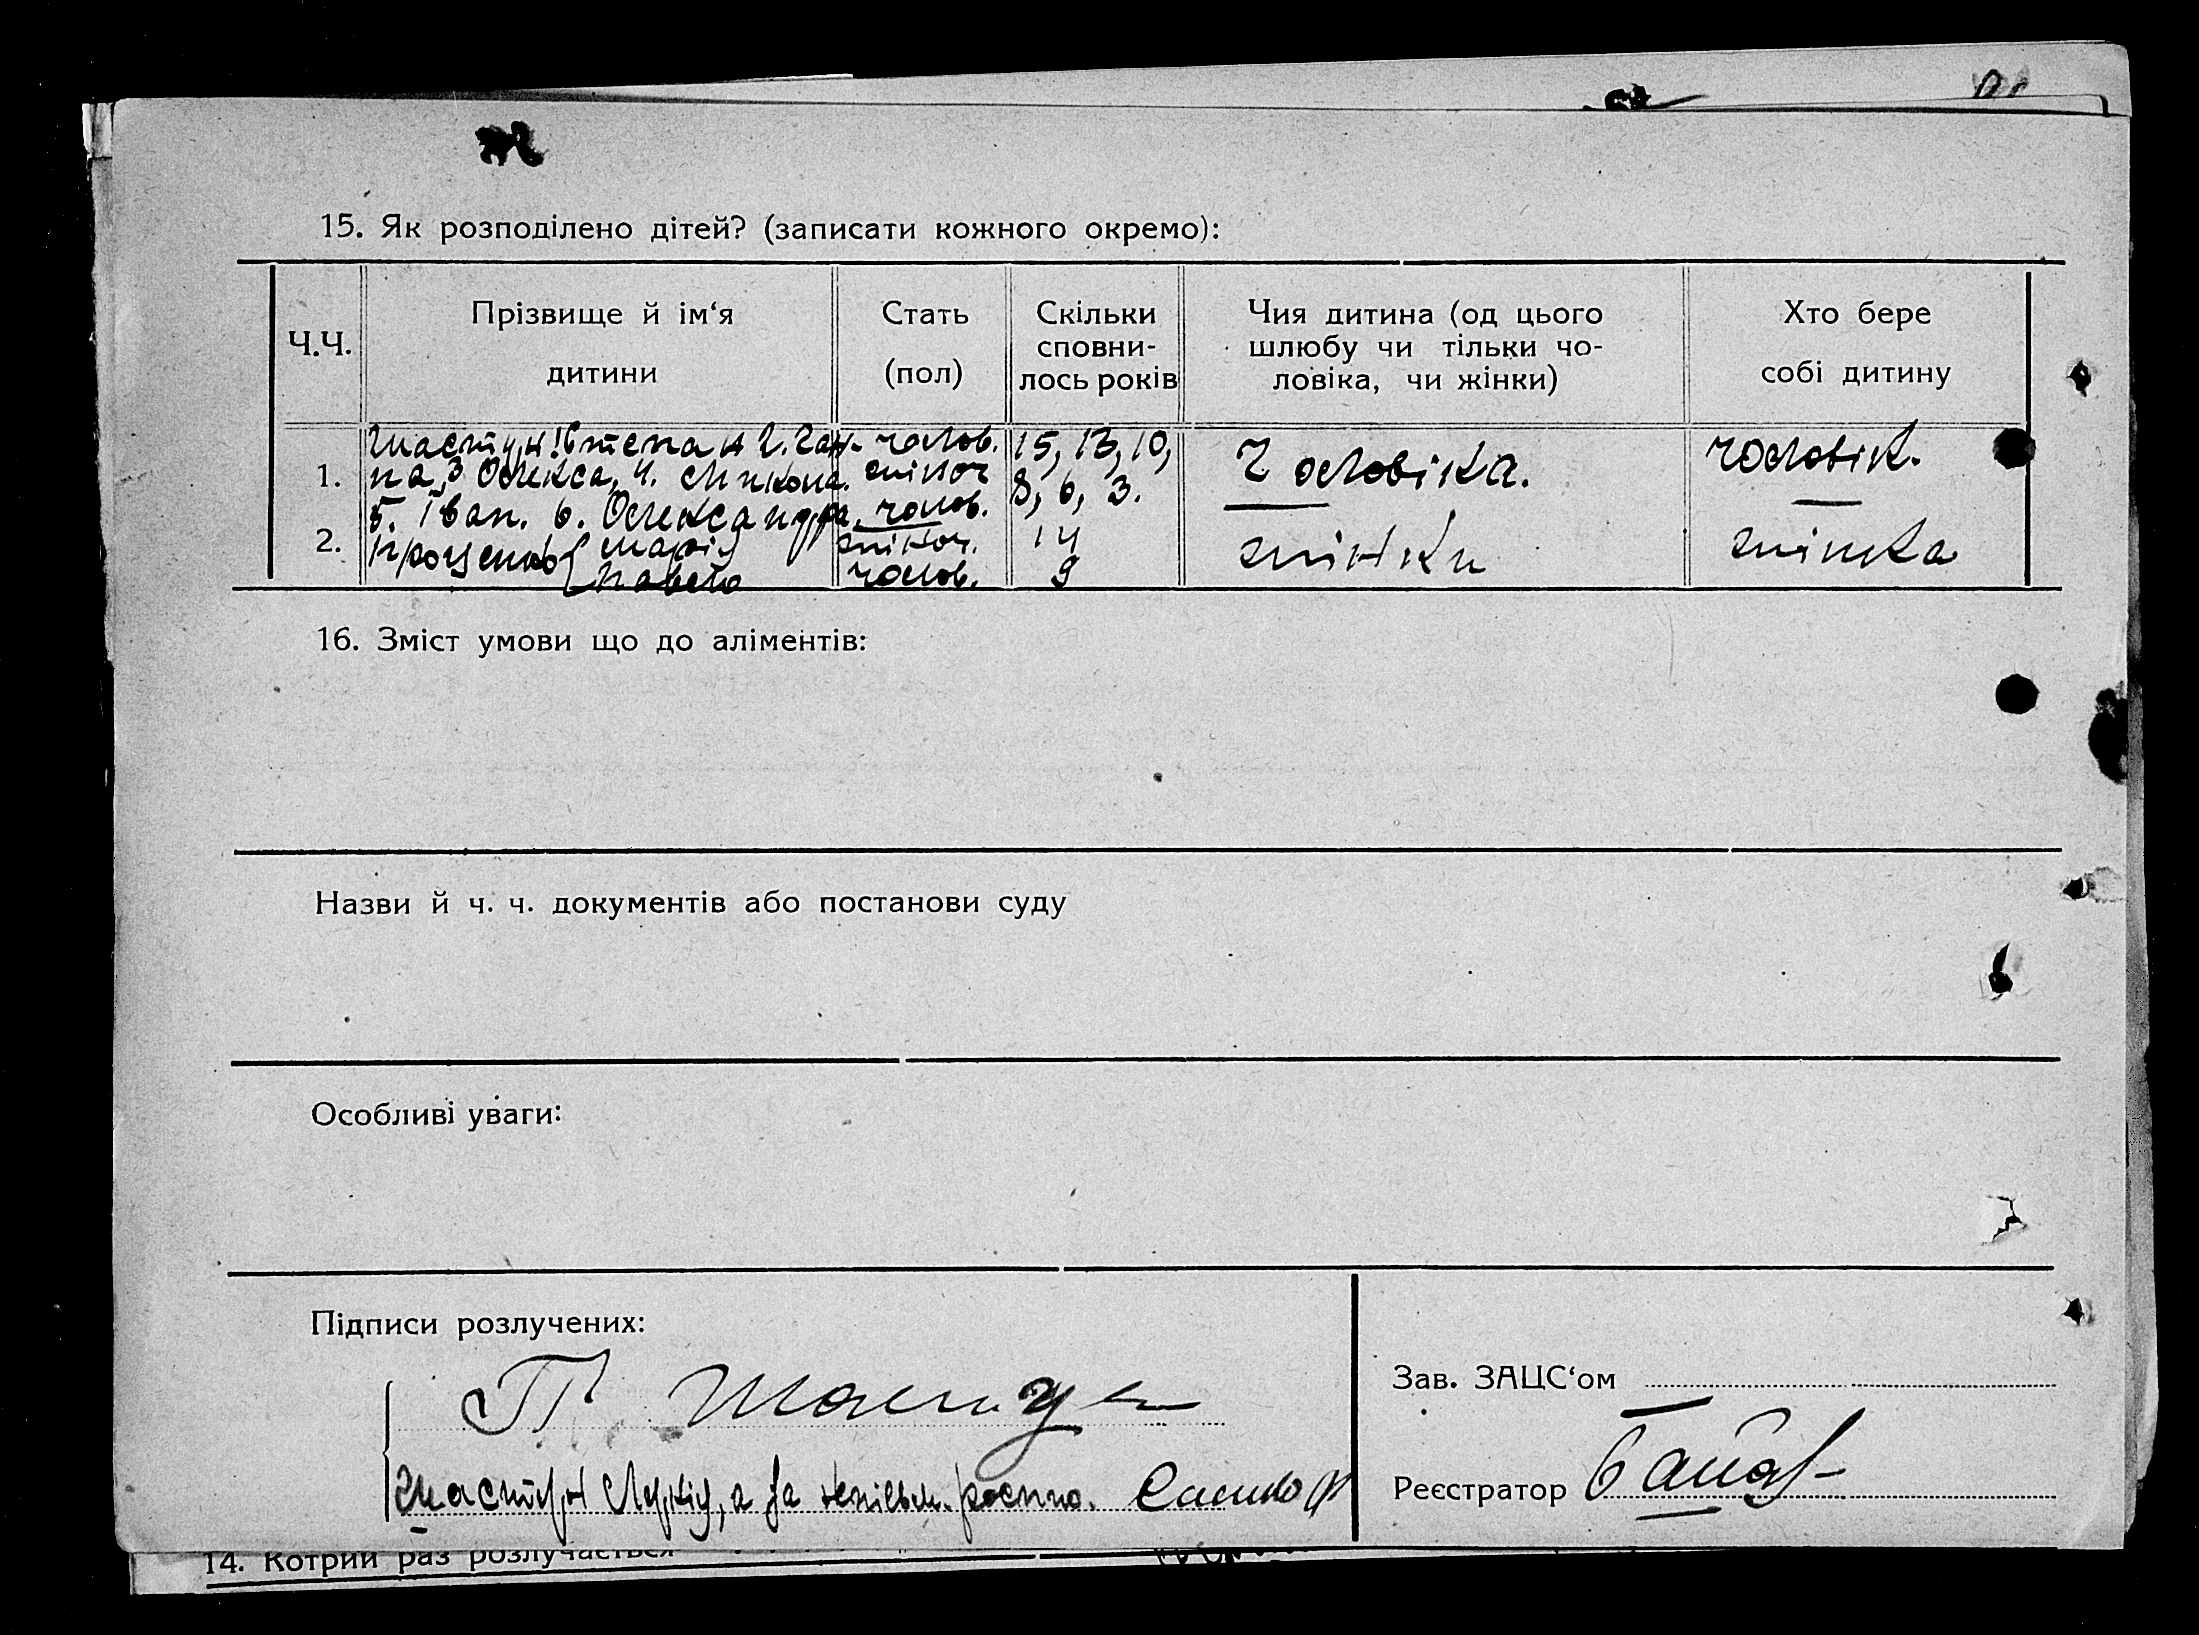 15. Як розподілено дітей? (записати кожного окремо):
Ч.Ч.
Прізвище й ім‘я
дитини
Стать
(пол)
Скільки
сповни-
лось років
Чия дитина (од цього
шлюбу чи тільки чо-
ловіка, чи жінки)
Хто бере
собі дитину
1.
Шастун 1. Степан 2. Ган-
на, 3 Олекса, 4. Микола.
5. Іван. 6. Олександра.
чолов.
жіноч
чолов.
15, 13, 10,
8, 6, 3.
Чоловіка.
чоловік.
2.
Проценко { Марія
Павело
жіноч.
чолов.
14
9
жінки
жінка
16. Зміст умови що до аліментів:
Назви й ч. ч. документів або постанови суду
Особливі уваги:
Підписи розлучених:
П Шастун
Шастун а за росписо.
Зав. ЗАЦС‘ом
Реєстратор
14. Котрий раз розлучається